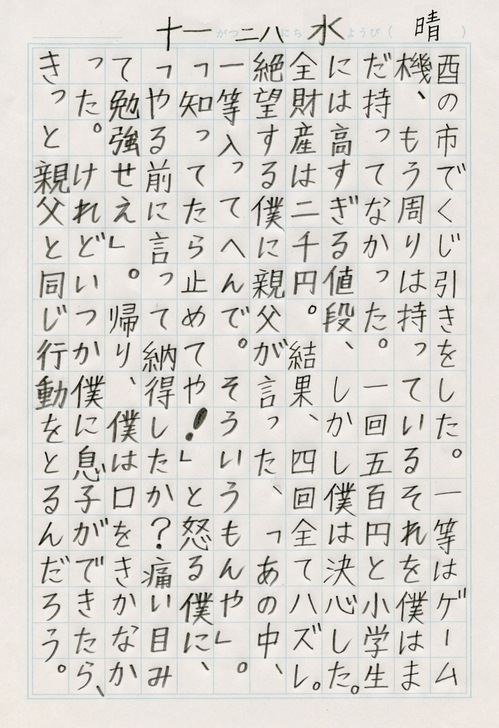 十一 がつ 二八 にち 水 ようび（ 晴 ）
酉の市でくじ引きをした。一等はゲーム
機、もう周りは持っているそれを僕はま
だ持ってなかった。一回五百円と小学生
には高すぎる値段、しかし僕は決心した。
全財産は二千円。結果、四回全てハズレ。
絶望する僕に親父が言った、「あの中、
一等入ってへんで。そういうもんや」。
「知ってたら止めてや！」と怒る僕に、
「やる前に言って納得したか？痛い目み
て勉強せえ」。帰り、僕は口をきかなか
った。けれどいつか僕に息子ができたら、
きっと親父と同じ行動をとるんだろう。